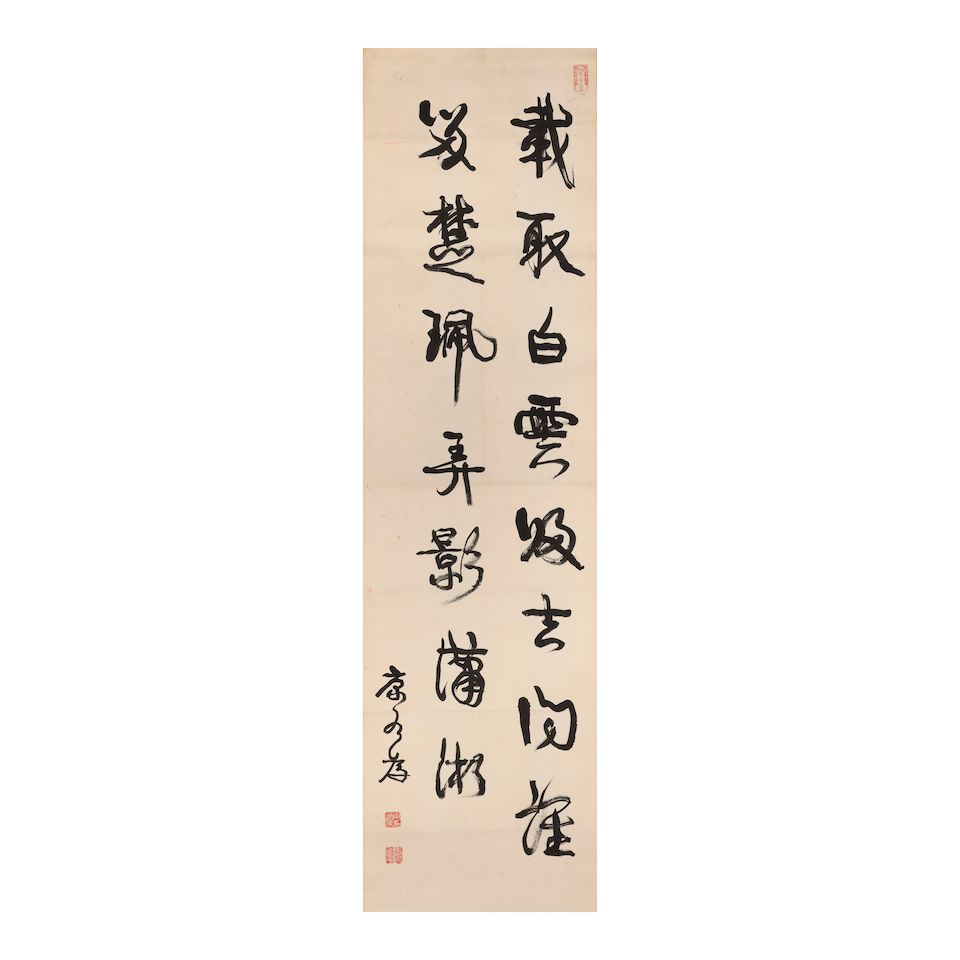 載取白雲歸去問誰
留楚珮弄影瀟湘
康有為